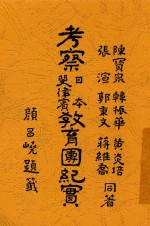 陳寶泉 韓振華 黃炎培
張渲 郭秉文 蔣維喬 同著
考察日本斐律賓教育團紀實
顏 題籤